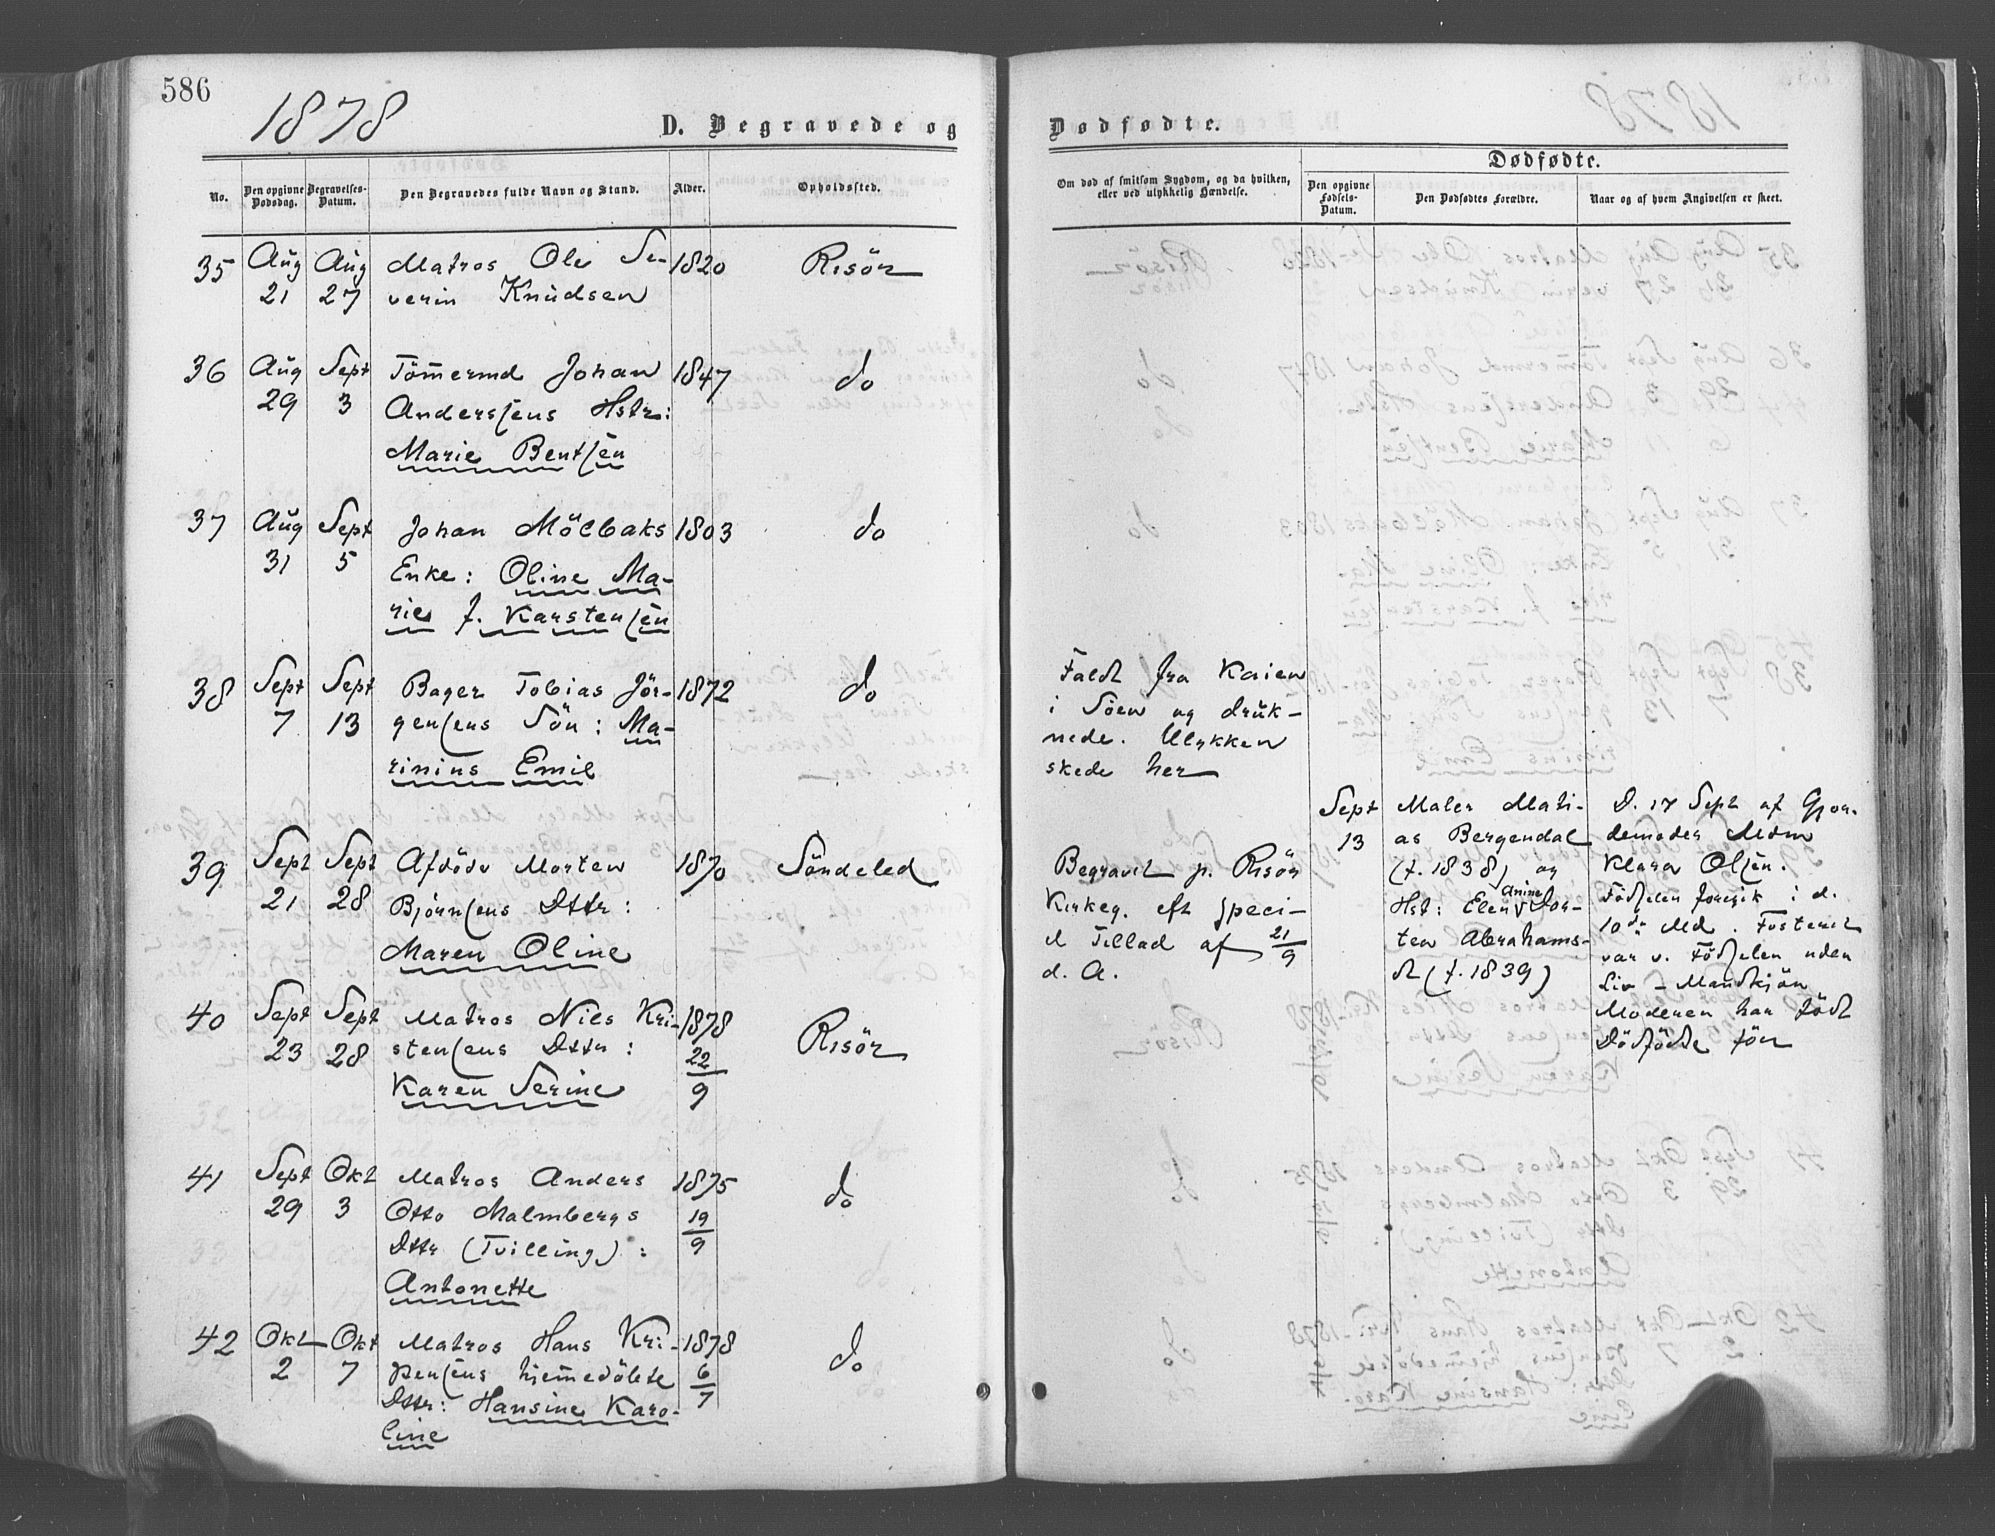 586
1878
D. Begravede og
No.
Den opgivne
Dødsdag.
Begravelses-
Datum.
Den Begravedes fulde Navn og Stand.
Alder.
Opholdssted.
35 Aug Aug Matros Ole Se- 1820 Risör
21 27 verin Knudsen
36 Aug Sept Tömermd Johan 1847 do
29 3 Anderssens Hstr:
Marie Bentsen
37 Aug Sept Johan Mölbaks 1803 do
31 5 Enke: Oline Ma-
rie f. Karstensen
38 Sept Sept Bager Tobias Jör- 1872 do
7 13 gensens Sön: Ma-
rinius Emil
39 Sept Sept Afdöde Morten 1870 Söndeled
21 28 Bjørnsens Dttr:
Maren Oline
40 Sept Sept Matros Niels Kri- 1878 Risör
23 28 stensens Dttr: 22
Karen Serine 9
41 Sept Okt Matros Anders 1875 do
29 3 Otto Malmbergs 19
Dttr (Tvilling): 9
Antonette
42 Okt Okt Matros Hans Kri- 1878 do
2 7 pensens hjemedöbte 6
Dttr: Hansine Karo- 7
line
Dødfødte.
Om død af smitsom Sygdom, og da hvilken,
eller ved ulykkelig Hændelse.
Dødfødte.
Den opgivne
Fødsels-
Datum.
Den Dødfødtes Forældre.
Naar og af hvem Angivelsen er skeet.
Faldt fra Kaien
i Söen og druk-
nede. Ulykken
skede her
Begravet p. Risör
Kirkeg. eft speci-
el Tillad af 21/9
d. A.
Sept
13
Maler Mati-
as Bergendal
(f. 1838) og
Hst: Elen Anine Dor-
tea Abrahams-
dt (f. 1839)
D. 17 Sept af Gjor-
demoder Mdm
Klara Olsen.
Födselen foregik i d.
10de Md. Fosteret
var v. Födselen uden
Liv - Mandkjön
Moderen har födt
Dödfödte för